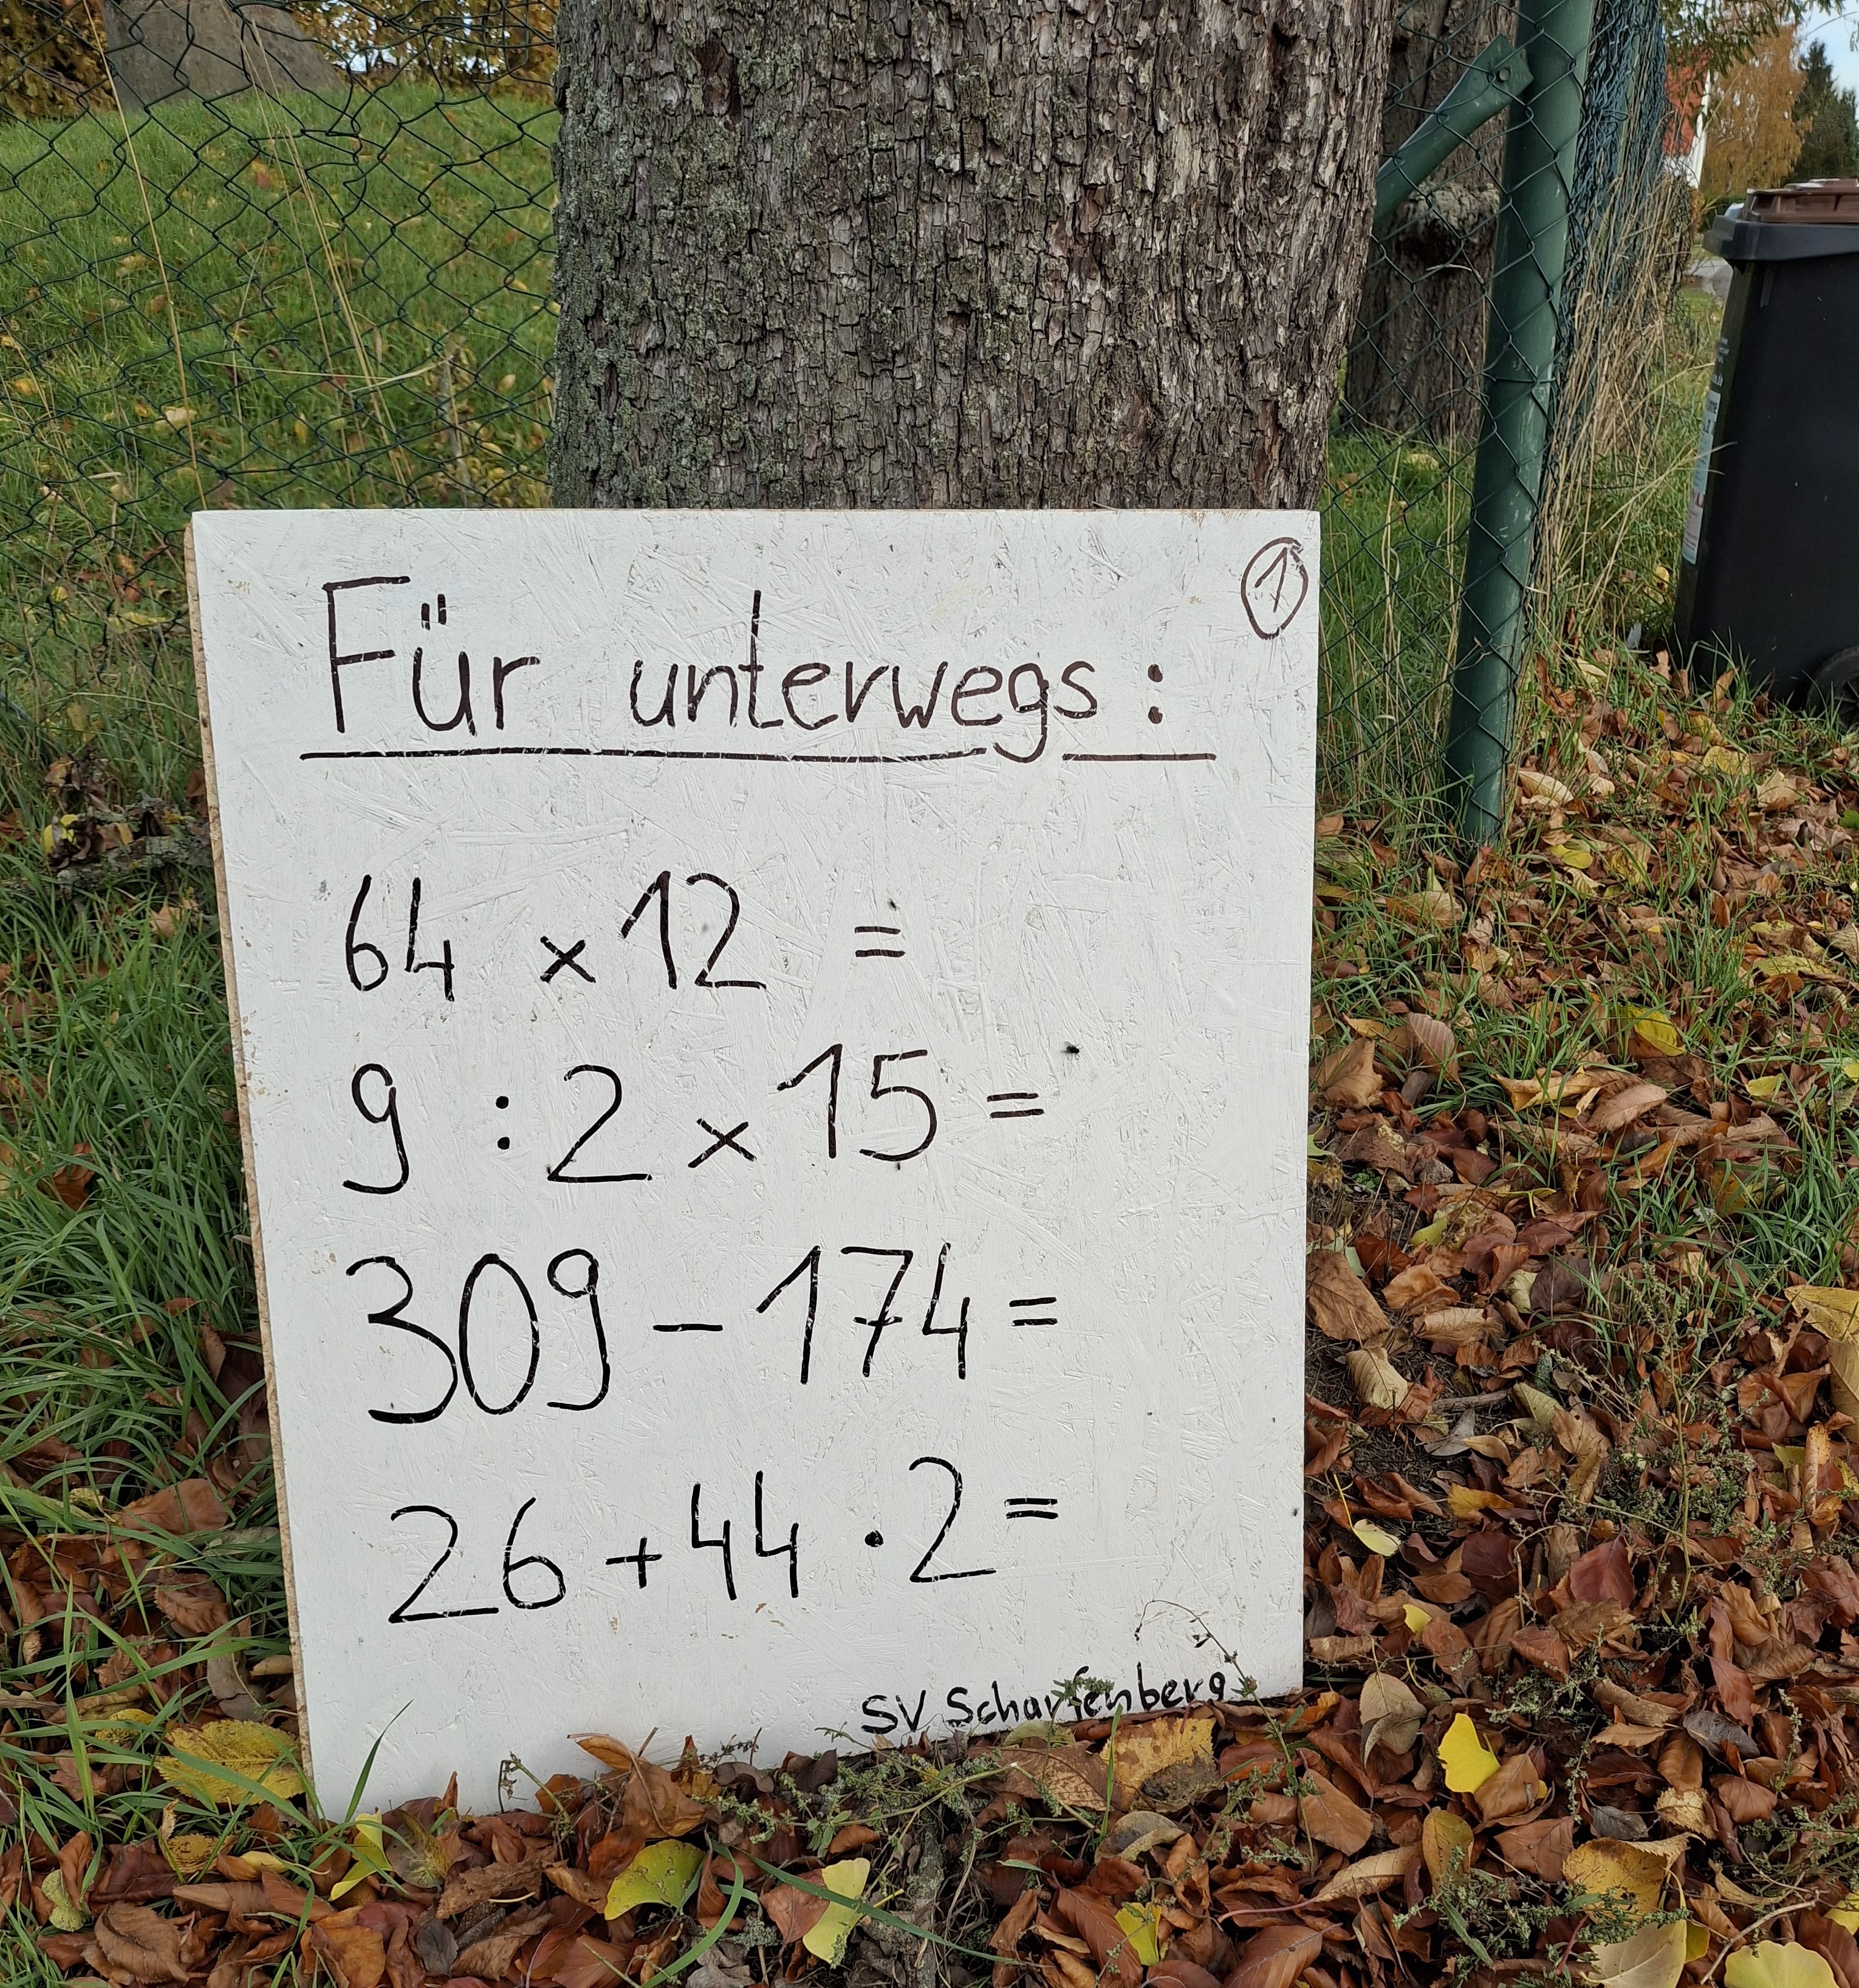 ①
Für unterwegs:
64 × 12 =
9 : 2 × 15 =
309 – 174 =
26 + 44 · 2 =
SV Scharfenberg